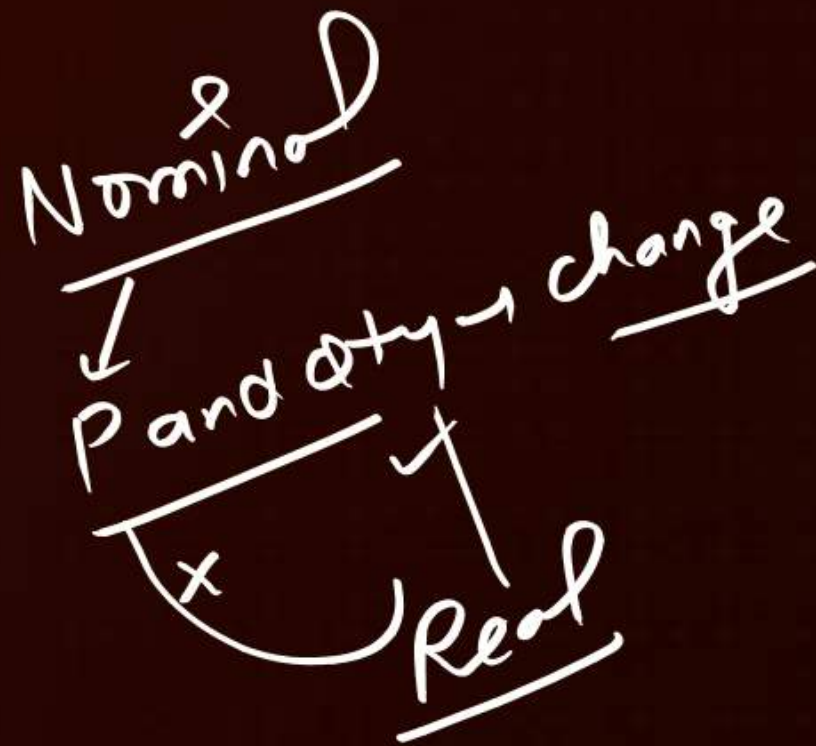 Nominal
↓
P and Qty → change
✓
x
Real